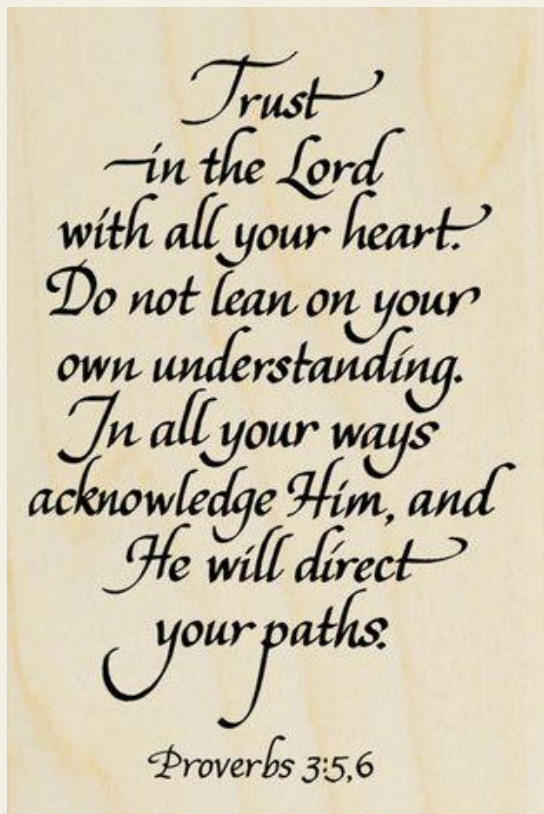 Trust
in the Lord
with all your heart.
Do not lean on your
own understanding.
In all your ways
acknowledge Him, and
He will direct
your paths.
Proverbs 3:5,6